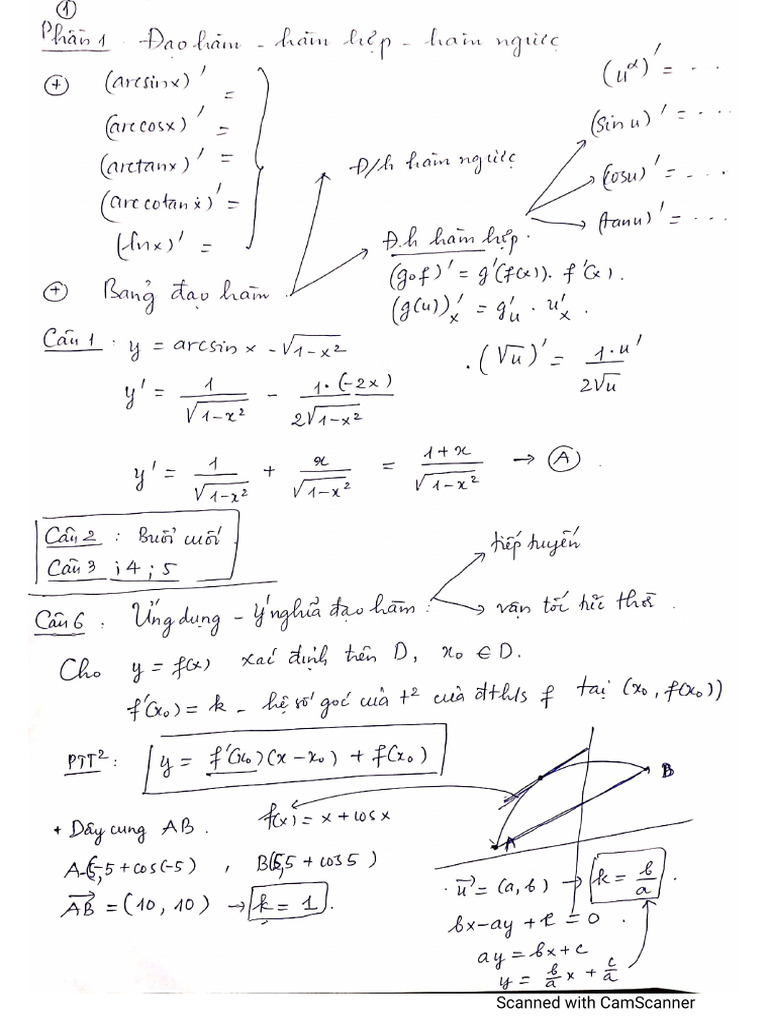 ①
Phần 1. Đạo hàm - hàm hợp - hàm ngược
⊕ (arcsinx)' =
(arccosx)' =
(arctanx)' =
(arccotanx)' =
(lnx)' =
Đ/h hàm ngược
(u^α)' = ...
(sinu)' = ...
(cosu)' = ...
(tanu)' = ...
Đ.h hàm hợp.
(gof)' = g'(f(x)). f'(x).
(g(u))'ₓ = g'ᵤ . u'ₓ .
⊕ Bảng đạo hàm.
Câu 1 : y = arcsinx - √(1-x²)
. (√u)' = 1.u' / 2√u
y' = 1/√(1-x²) - 1.(-2x)/2√(1-x²)
y' = 1/√(1-x²) + x/√(1-x²) = (1+x)/√(1-x²) → Ⓐ.
Câu 2 : Buổi cuối
Câu 3 ; 4 ; 5
Câu 6 . Ứng dụng - Ý nghĩa đạo hàm :
tiếp tuyến
vận tốc tức thời .
Cho y = f(x) xác định trên D, x₀ ∈ D.
f'(x₀) = k - hệ số góc của t² của đths f tại (x₀, f(x₀))
PTT² : y = f'(x₀)(x-x₀) + f(x₀)
+ Dây cung AB. f(x) = x + cosx
A B
A(-5,-5+cos(-5)) , B(5,5+cos5)
AB = (10, 10) → k = 1.
. u = (a, b) → k = b/a .
bx-ay + c = 0 .
ay = bx+c
y = b/a x + c/a
Scanned with CamScanner